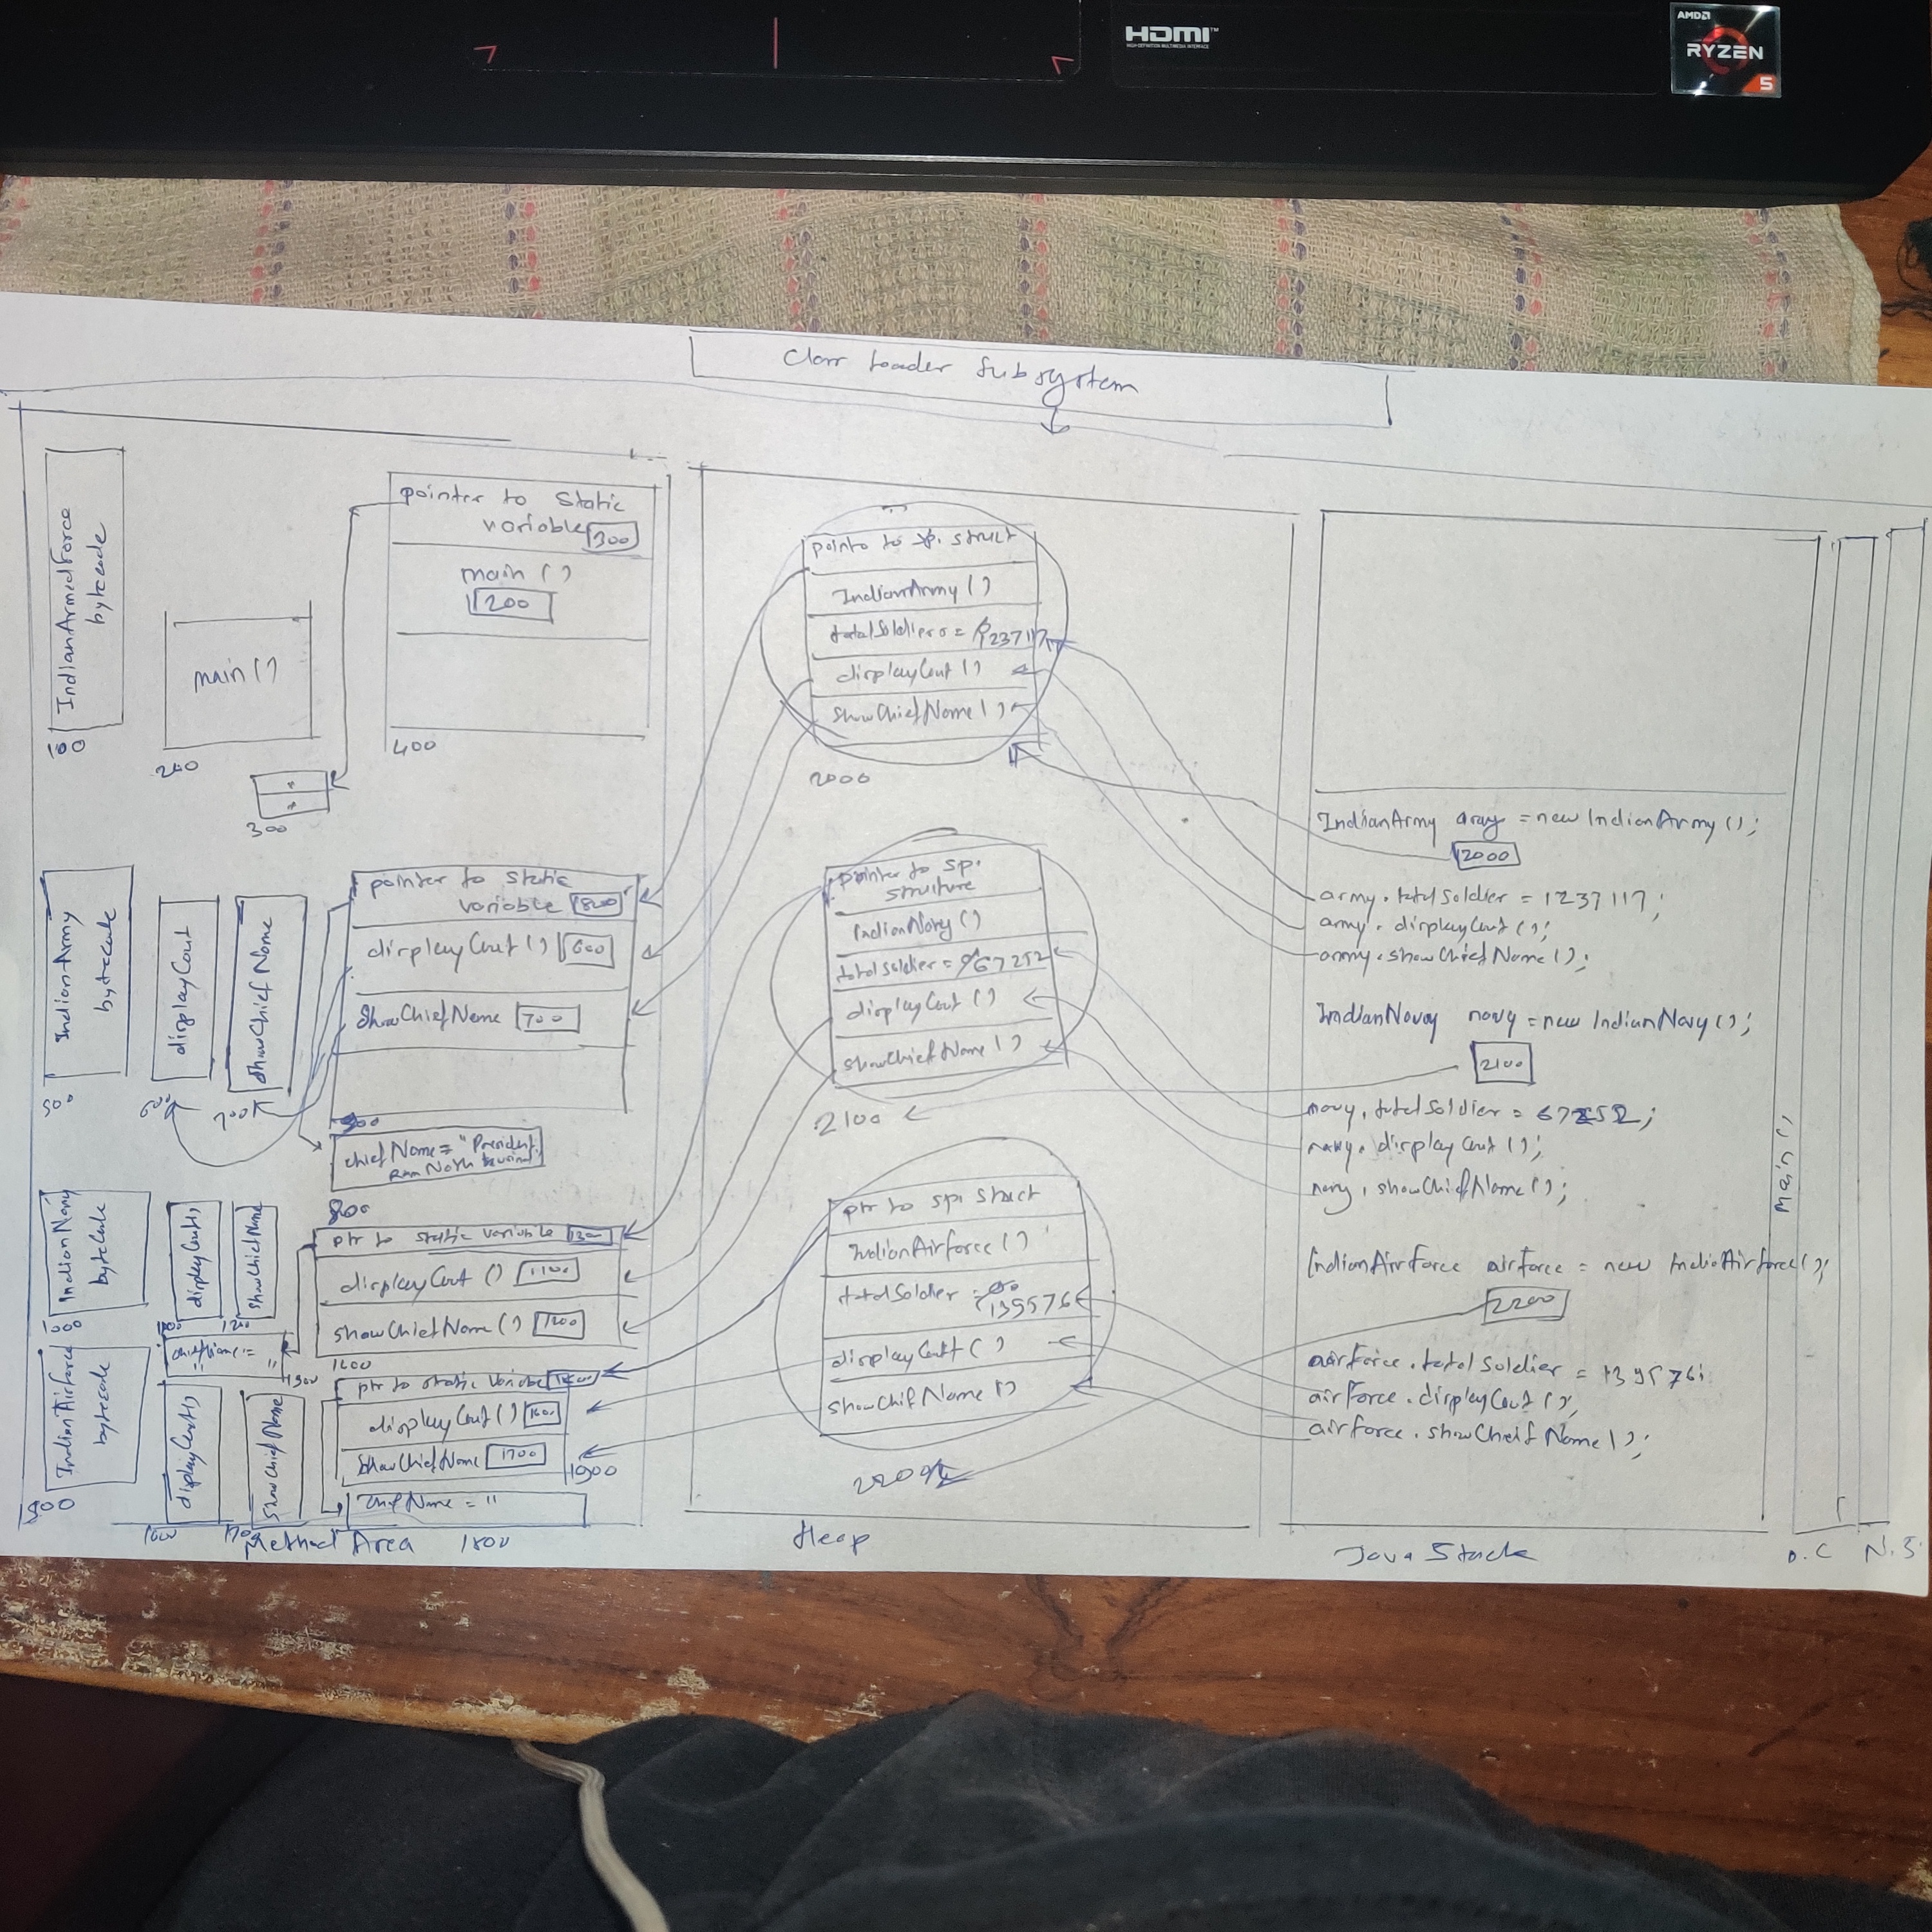 Class Loader Subsystem
100
IndianArmedForce
bytecode
200
main()
300
pointer to static
variable 300
main()
200
400
500
IndianArmy
bytecode
600
displayCout
700
showChiefName
pointer to static
variable 800
displayCout() 600
showChiefName 700
900
chiefName = "
800
1000
IndianNavy
bytecode
1100
displayCout()
1200
showChiefName
chiefName = "
1300
ptr to static variable 1300
displayCout() 1100
showChiefName() 1200
IndianAirforce
bytecode
displayCout()
1700
showChiefName
ptr to static variable
displayCout()
showChiefName 1700
chiefName = "
1900
1800
Method Area
pointe to sp. struct
IndianArmy()
totalSoldier = 1237117
displayCout()
showChiefName()
2000
pointer to sp.
struture
IndianNavy()
totalSoldier = 67252
displayCout()
showChiefName()
2100
ptr to spi struct
IndianAirforce()
totalSoldier = 139576
displayCout()
showChifName()
2200
Heap
IndianArmy army = new IndianArmy();
2000
army.totalSoldier = 1237117;
army.displayCout();
army.showChiefName();
IndianNavy navy = new IndianNavy();
2100
navy.totalSoldier = 67252;
navy.displayCout();
navy.showChiefName();
IndianAirforce airforce = new IndiaAirforce();
2200
airforce.totalSoldier = 139576;
airforce.displayCout();
airforce.showChiefName();
main()
Java Stack
P.C
N.S
HDMI
AMD
RYZEN
5